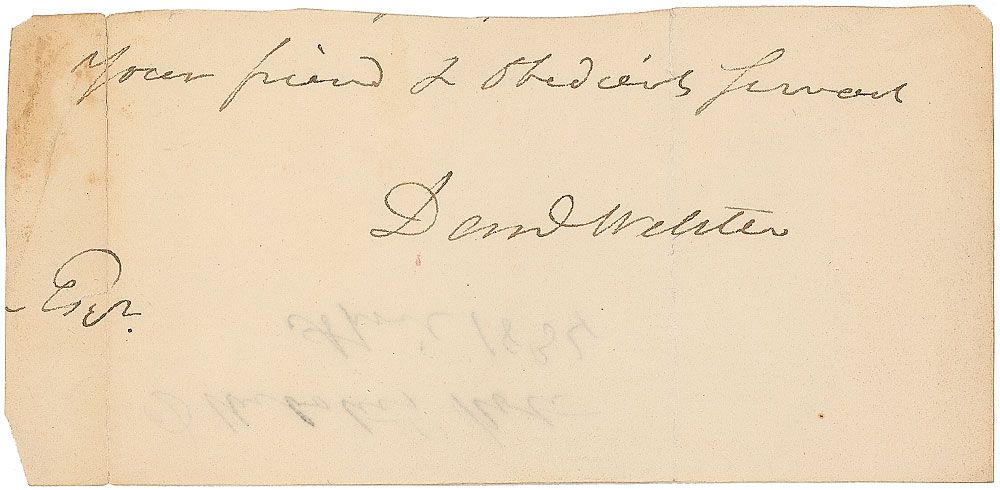 Your friend & Obedient Servant
Danl Webster
Esqr.